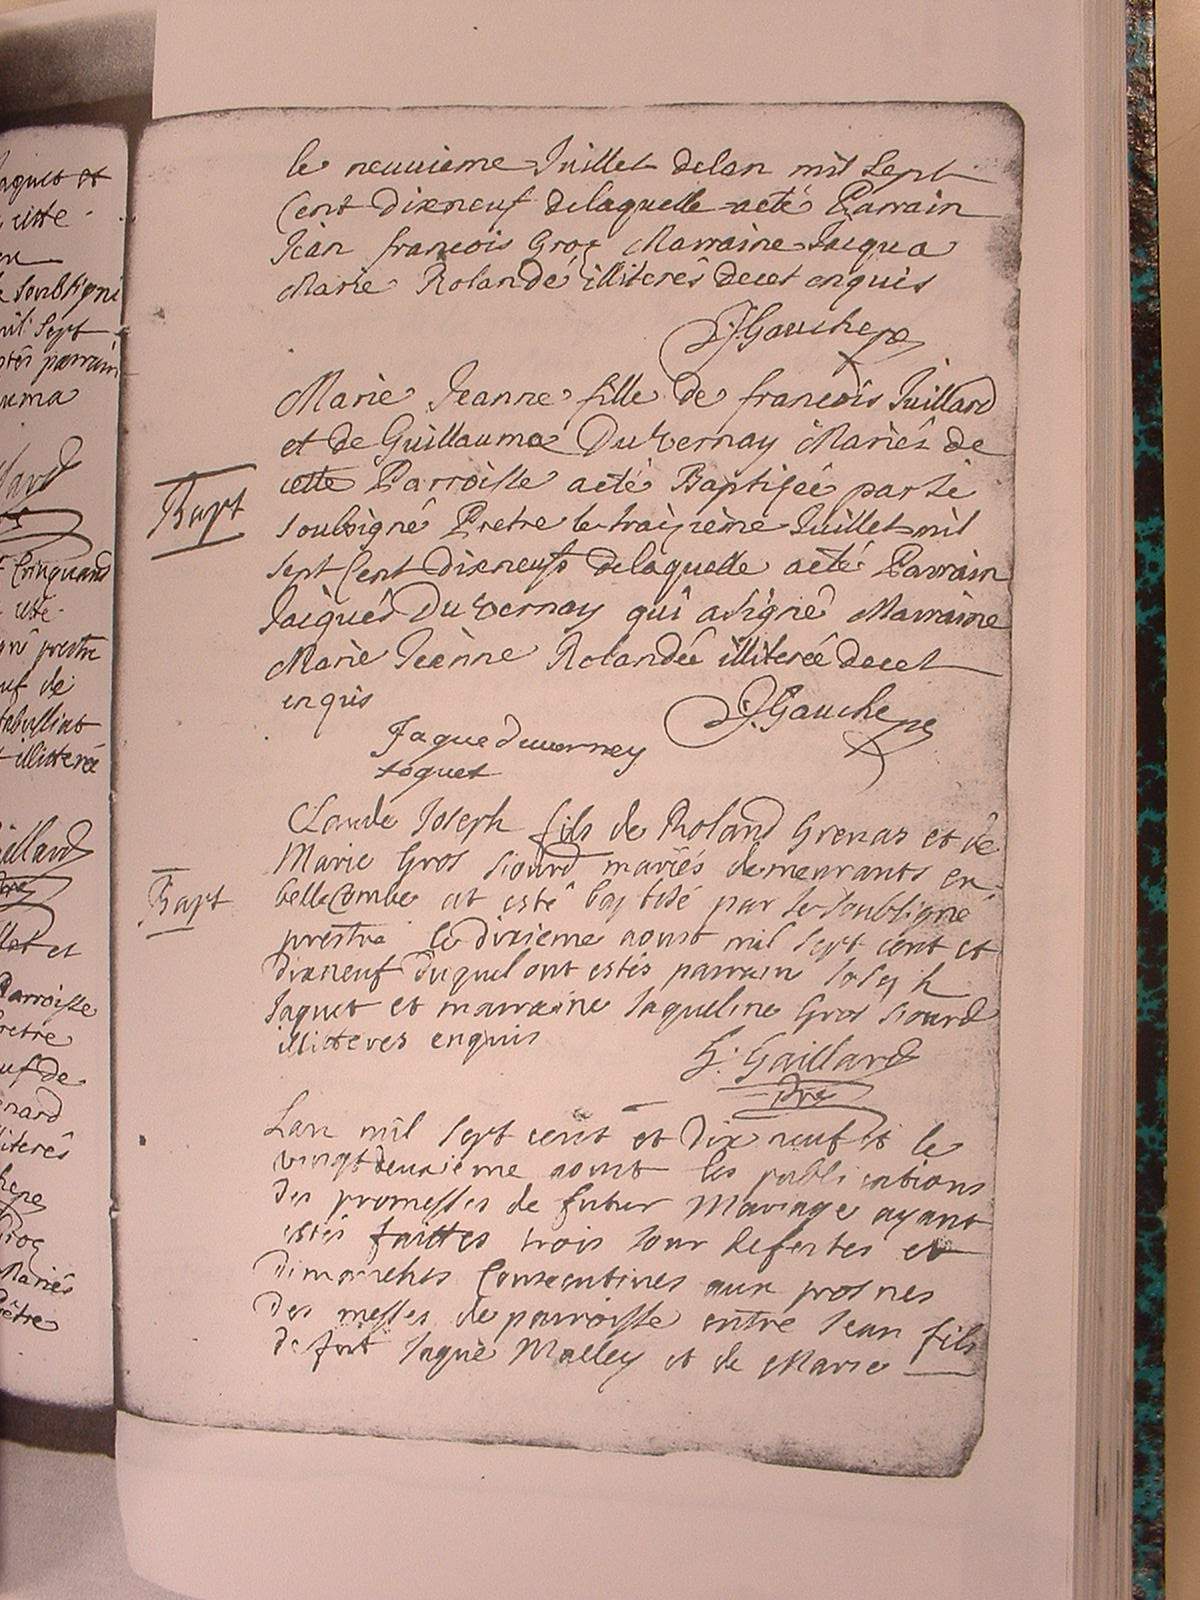 le neuvieme Juillet delan mil Sept
Cent dixneuf delaquelle aeté Parrain
Jean francois Groz Marraine Jacqua
Marie Rolande illiterés decet enquis
J Gauche pre
Marie Jeanne fille de francois Juillard
et de Guillauma DuVernay Mariés de
cette Parroisse aeté Baptisée par Le
Soubsigné Pretre le traizième Juillet mil
Sept Cent dixneuf delaquelle aeté Parrain
Jaiques DuVernay qui asigné Marraine
Marie Jeanne Rolandée illiterée decet
enquis
J Gauche pre
Jaque duverney
toquet
Bapt
Claude Joseph fils de Roland Grenas et de
Marie Gros Siourd mariés demeurants en
bellecombe at esté baptisé par le Soubsigné
prestre le dixieme aoust mil sept cent et
dixneuf duquel ont estés parrain Joseph
Jaquet et marraine Jaqueline Gros Siourd
illitteres enquis
Gaillard
pre
Bapt
Lan mil sept cent et dix neuf et le
vingtdeuxieme aoust les publications
des promesses de futur Mariage ayant
estés faittes trois Jour de festes et
dimanches Consecutives aux prosnes
des messes de parroisse entre Jean fils
de fut Jaque Malley et de Marie
aquet et
mil Sept
parrain
uma
Cringuand
prestre
uf de
illitterée
aillard
pre
llet et
Parroisse
uf de
Mariés